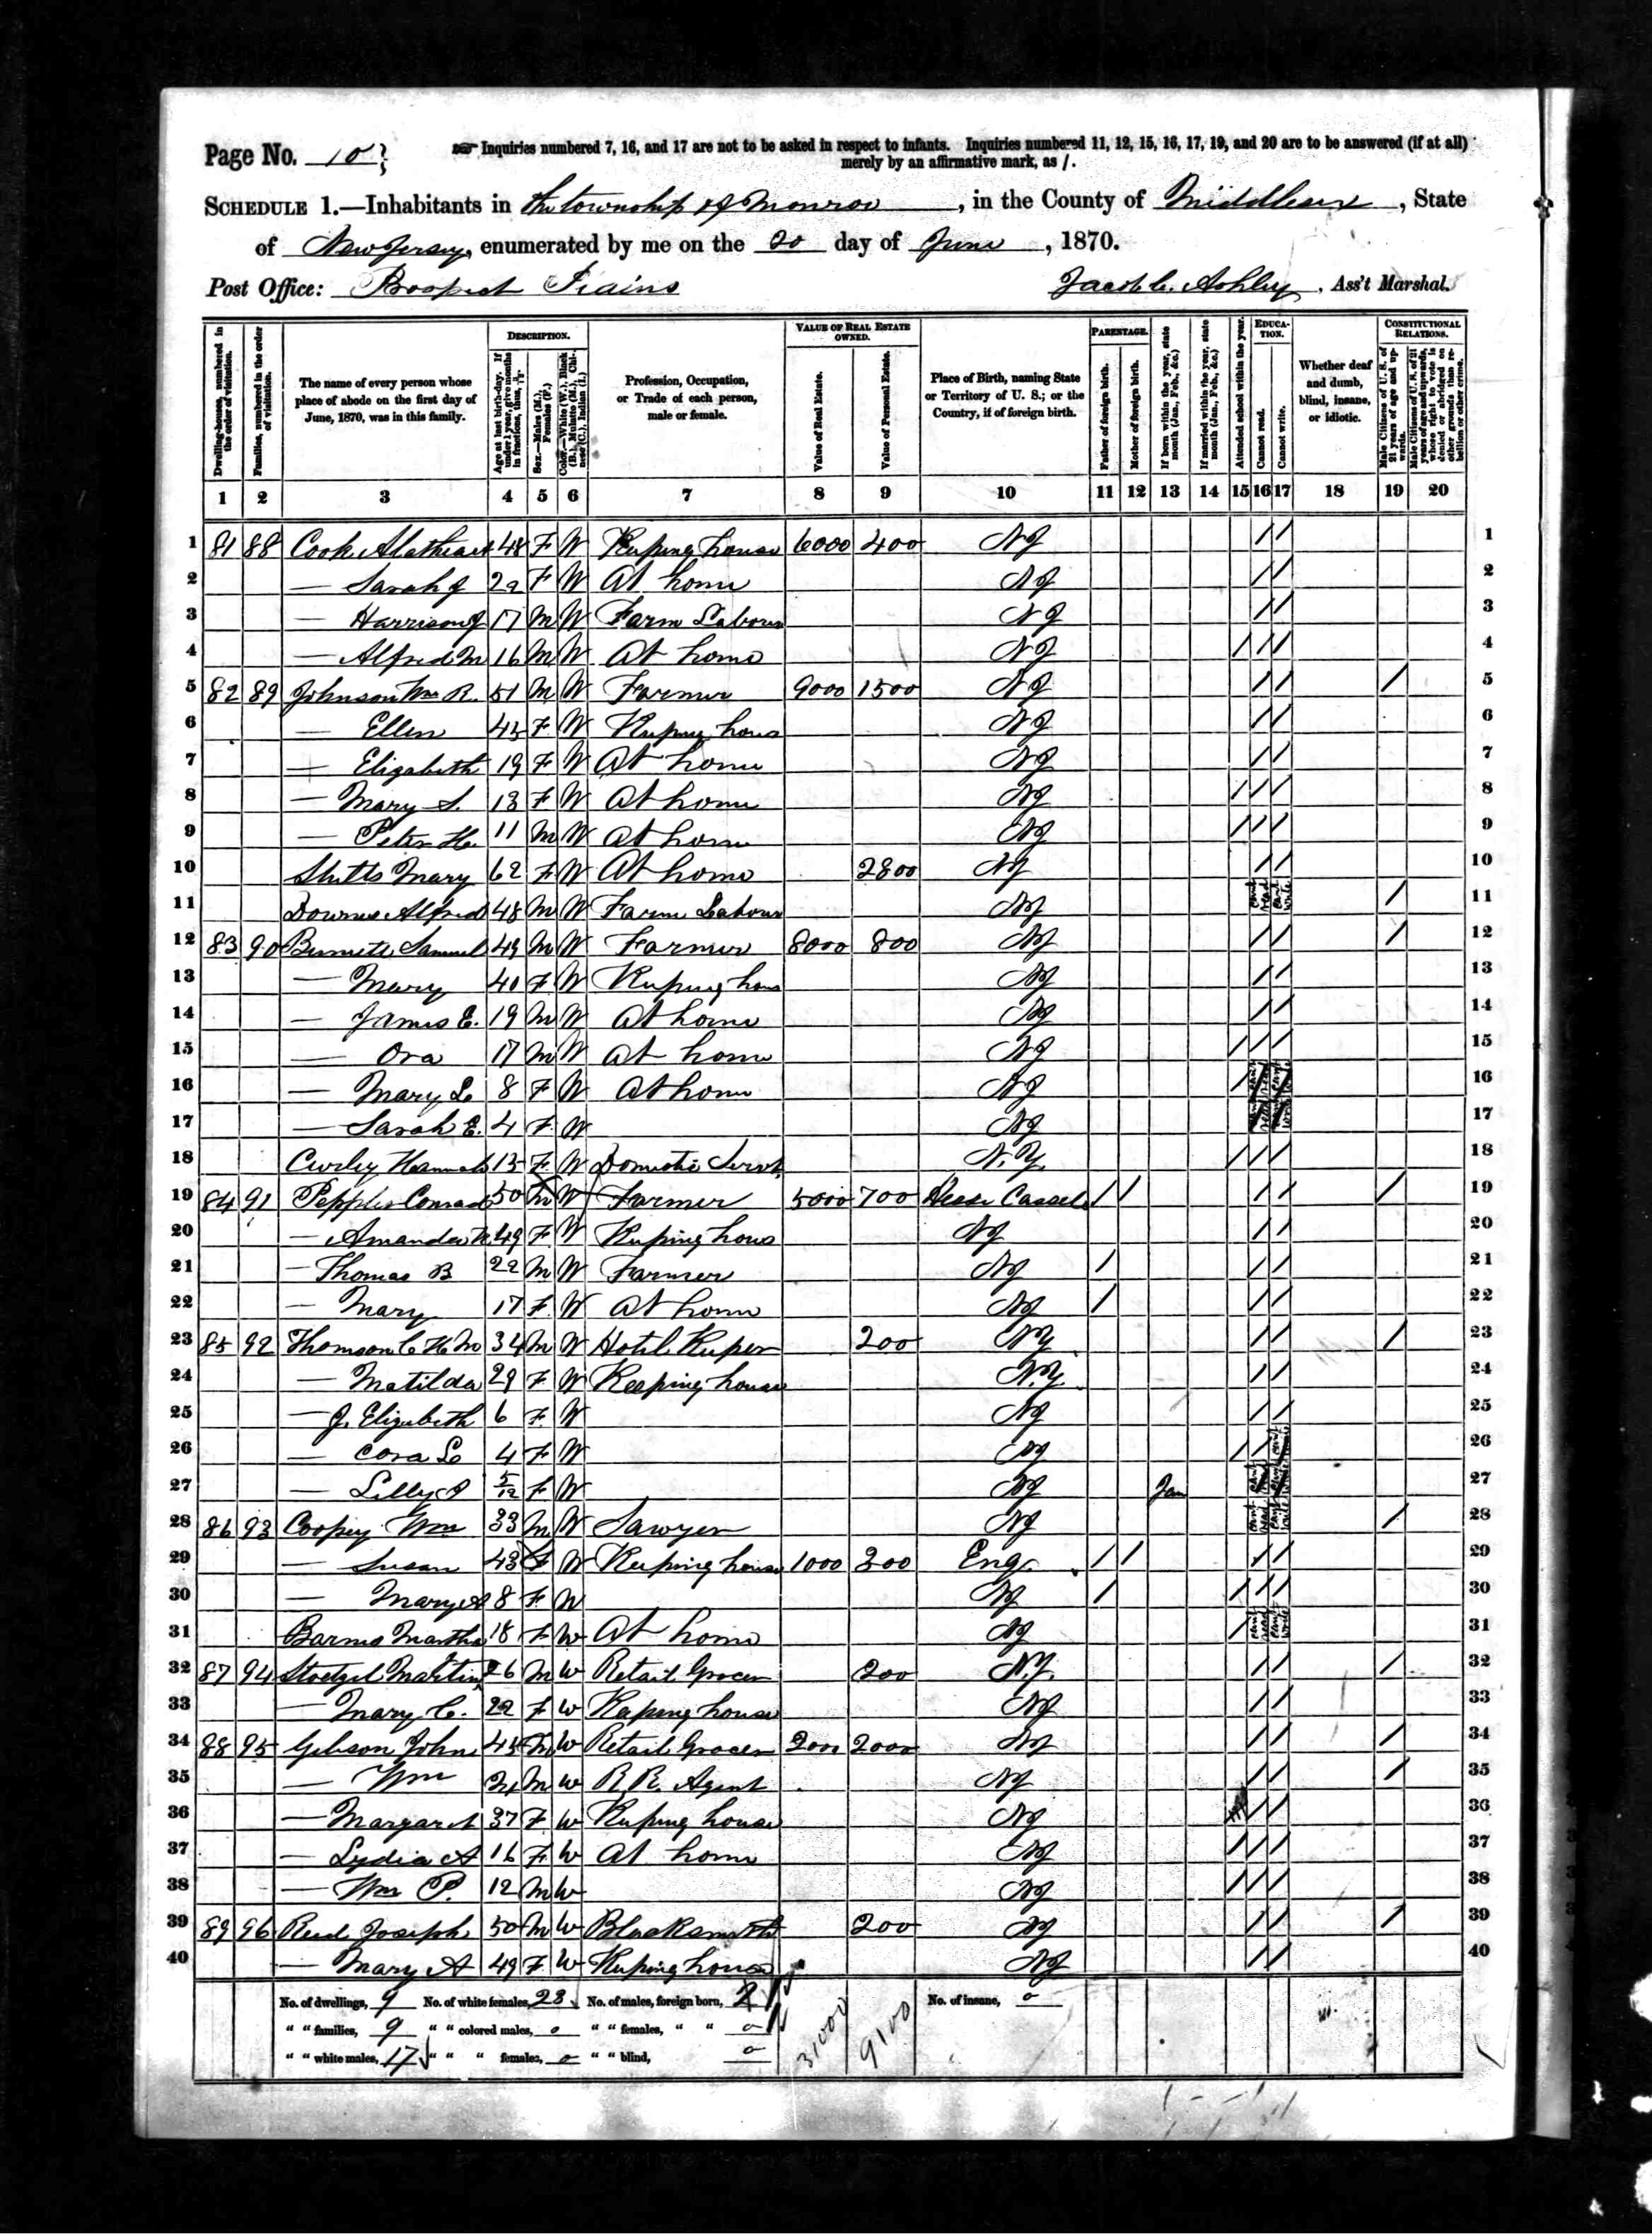 Page No. 10
Inquiries numbered 7, 16, and 17 are not to be asked in respect to infants. Inquiries numbered 11, 12, 15, 16, 17, 19, and 20 are to be answered (if at all)
merely by an affirmative mark, as /.
SCHEDULE 1.—Inhabitants in The township of Monroe, in the County of Middlesex, State
of New Jersey, enumerated by me on the 20 day of June, 1870.
Post Office: Prospect Plains Jacob C. Ashley, Ass't Marshal.
Dwelling-houses, numbered in the order of visitation.
Families, numbered in the order of visitation.
The name of every person whose place of abode on the first day of June, 1870, was in this family.
DESCRIPTION.
Age at last birth-day. If under 1 year, give months in fractions, thus, 3/12.
Sex.—Males (M.), Females (F.)
Color.—White (W.), Black (B.), Mulatto (M.), Chinese (C.), Indian (I.)
Profession, Occupation, or Trade of each person, male or female.
VALUE OF REAL ESTATE OWNED.
Value of Real Estate.
Value of Personal Estate.
Place of Birth, naming State or Territory of U. S.; or the Country, if of foreign birth.
PARENTAGE.
Father of foreign birth.
Mother of foreign birth.
If born within the year, state month (Jan., Feb., &c.)
If married within the year, state month (Jan., Feb., &c.)
Attended school within the year.
EDUCATION.
Cannot read.
Cannot write.
Whether deaf and dumb, blind, insane, or idiotic.
CONSTITUTIONAL RELATIONS.
Male Citizens of U. S. of 21 years of age and upwards.
Male Citizens of U. S. of 21 years of age and upwards, whose right to vote is denied or abridged on other grounds than rebellion or other crime.
1 2 3 4 5 6 7 8 9 10 11 12 13 14 15 16 17 18 19 20
1 81 88 Cook 48 F W Keeping house 6000 400 NJ / / 1
2 — Sarah J 22 F W At home NJ / / 2
3 — Harrison J 17 M W Farm Labour NJ / / 3
4 — Alfred M 16 M W At home NJ / / / 4
5 82 89 Johnson Wm R. 51 M W Farmer 9000 1500 NJ / / / 5
6 — Ellen 45 F W Keeping hous NJ / / 6
7 — Elizabeth 19 F W At home NJ / / 7
8 — Mary S. 13 F W At home NJ / / / 8
9 — Peter H. 11 M W At home NJ / / / 9
10 Mary 62 F W At home 2800 NJ / / 10
11 Downs Alfred 48 M W Farm Labour NJ cant read cant write / 11
12 83 90 Samuel 49 M W Farmer 8000 800 NJ / / / 12
13 — Mary 40 F W Keeping hous NJ / / 13
14 — James E. 19 M W At home NJ / / 14
15 — Ora 17 M W At home NJ / / / 15
16 — Mary L 8 F W At home NJ / 16
17 — Sarah E. 4 F W NJ 17
18 Curley Hannah 15 F W Domestic Servt N.Y. / / / 18
19 84 91 Pepples Conrad 50 M W Farmer 5000 700 Hesse Cassel / / / / / 19
20 — Amanda 49 F W Keeping hous NJ / / 20
21 — Thomas B 22 M W Farmer NJ / / / 21
22 — Mary 17 F W At home NJ / / / 22
23 85 92 Thomson C H M 34 M W Hotel Keeper 200 NY / / / 23
24 — Matilda 29 F W Keeping house N.Y. / / 24
25 — J. Elizabeth 6 F W NJ / / 25
26 — Cora L 4 F W NJ / / 26
27 — Lilly 5/12 F W NJ Jan 27
28 86 93 Wm 33 M W Sawyer NJ cant read cant write / 28
29 — Susan 43 F W Keeping house 1000 300 Eng. / / / / 29
30 — Mary A 8 F W NJ / / / / 30
31 Martha 18 F W At home NJ / cant read cant write 31
32 87 94 Stoetzel Martin 26 M W Retail Grocer 200 N.Y. / / / 32
33 — Mary C. 22 F W Keeping house NJ / / 33
34 88 95 Gibson John 45 M W Retail Grocer 2000 2000 NJ / / / 34
35 — Wm 21 M W R. R. Agent NJ / / / 35
36 — Margaret 37 F W Keeping house NJ / / 36
37 — Lydia A 16 F W At home NJ / / / 37
38 — Wm P. 12 M W NJ / / / 38
39 89 96 Reed Joseph 50 M W Blacksmith 200 NJ / / / 39
40 — Mary A 49 F W Keeping house NJ / / 40
No. of dwellings, 9 No. of white females, 23 No. of males, foreign born, No. of insane, 0
" " families, 9 " " colored males, 0 " " females, " " 0
" " white males, 17 " " " females, 0 " " blind, 0
31000 9100